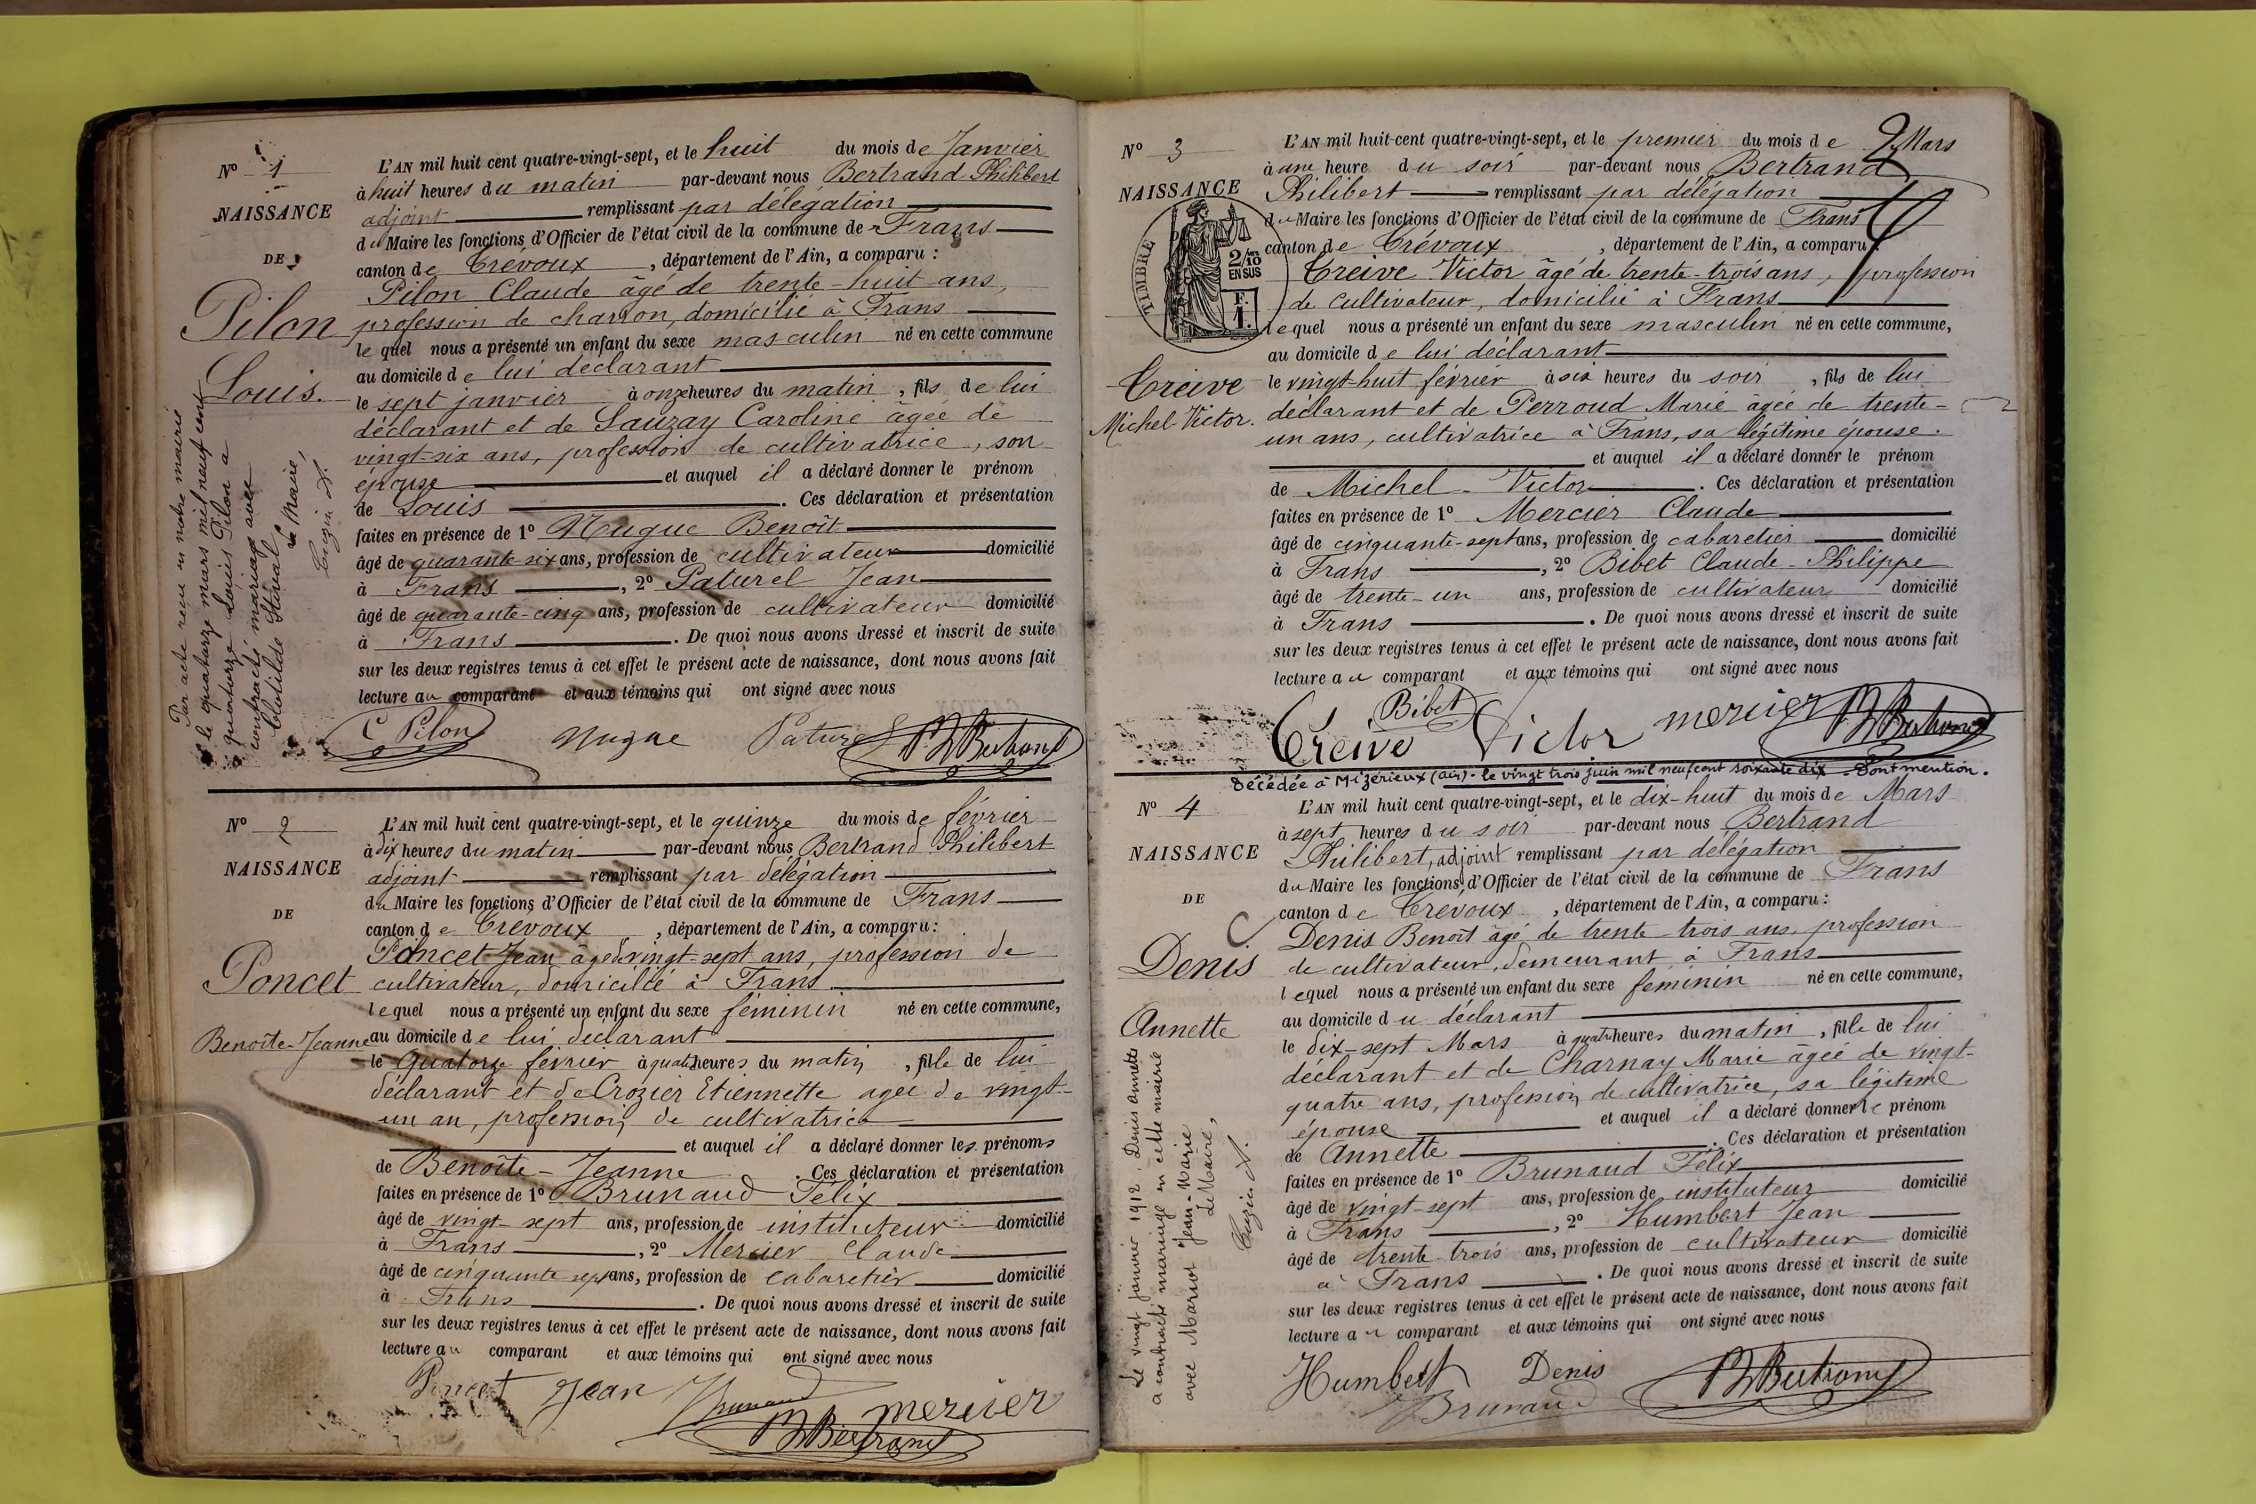 N° 1
NAISSANCE
DE
Pilon
Louis.
Par acte recu en notre mairie
le quatorze mars mil neuf cent
quatorze Louis Pilon a
contracté mariage avec
Clotilde
le Maire,
Cuzin A.
L'AN mil huit cent quatre-vingt-sept, et le huit du mois de Janvier
à huit heures du matin par-devant nous Bertrand Philibert
adjoint remplissant par délégation
du Maire les fonctions d'Officier de l'état civil de la commune de Frans
canton de Trévoux, département de l'Ain, a comparu :
Pilon Claude âgé de trente-huit ans,
profession de charron, domicilié à Frans
lequel nous a présenté un enfant du sexe masculin né en cette commune
au domicile de lui déclarant
le sept janvier à onze heures du matin, fils de lui
déclarant et de Sauzay Caroline âgée de
vingt-six ans, profession de cultivatrice, son
épouse et auquel il a déclaré donner le prénom
de Louis. Ces déclaration et présentation
faites en présence de 1° Nugue Benoît
âgé de quarante-six ans, profession de cultivateur domicilié
à Frans, 2° Paturel Jean
âgé de quarante-cinq ans, profession de cultivateur domicilié
à Frans. De quoi nous avons dressé et inscrit de suite
sur les deux registres tenus à cet effet le présent acte de naissance, dont nous avons fait
lecture au comparant et aux témoins qui ont signé avec nous
C Pilon Nugue Paturel Bertrand
N° 2
NAISSANCE
DE
Poncet
Benoîte-Jeanne
L'AN mil huit cent quatre-vingt-sept, et le quinze du mois de février
à dix heures du matin par-devant nous Bertrand Philibert
adjoint remplissant par délégation
du Maire les fonctions d'Officier de l'état civil de la commune de Frans
canton de Trévoux, département de l'Ain, a comparu :
Poncet Jean âgé de vingt-sept ans, profession de
cultivateur, domicilié à Frans
lequel nous a présenté un enfant du sexe féminin né en cette commune,
au domicile de lui déclarant
le quatorze février à quatre heures du matin, fille de lui
déclarant et de Crozier Etiennette agée de vingt-
un an, profession de cultivatrice
et auquel il a déclaré donner les prénoms
de Benoîte-Jeanne. Ces déclaration et présentation
faites en présence de 1° Brunaud Félix
âgé de vingt-sept ans, profession de instituteur domicilié
à Frans, 2° Mercier Claude
âgé de cinquante sept ans, profession de cabaretier domicilié
à Frans. De quoi nous avons dressé et inscrit de suite
sur les deux registres tenus à cet effet le présent acte de naissance, dont nous avons fait
lecture au comparant et aux témoins qui ont signé avec nous
Poncet Jean Brunaud mercier
Bertrand
N° 3
NAISSANCE
TIMBRE
2/10
EN SUS
F.
1.
Treive
Michel-Victor.
L'AN mil huit-cent quatre-vingt-sept, et le premier du mois de Mars
à une heure du soir par-devant nous Bertrand
Philibert remplissant par délégation
du Maire les fonctions d'Officier de l'état civil de la commune de Frans
canton de Trévoux, département de l'Ain, a comparu :
Treive Victor âgé de trente-trois ans, profession
de cultivateur, domicilié à Frans
lequel nous a présenté un enfant du sexe masculin né en cette commune,
au domicile de lui déclarant
le vingt-huit février à six heures du soir, fils de lui
déclarant et de Perroud Marie âgée de trente-
un ans, cultivatrice à Frans, sa légitime épouse.
et auquel il a déclaré donner le prénom
de Michel-Victor. Ces déclaration et présentation
faites en présence de 1° Mercier Claude
âgé de cinquante-sept ans, profession de cabaretier domicilié
à Frans, 2° Bibet Claude-Philippe
âgé de trente-un ans, profession de cultivateur domicilié
à Frans. De quoi nous avons dressé et inscrit de suite
sur les deux registres tenus à cet effet le présent acte de naissance, dont nous avons fait
lecture au comparant et aux témoins qui ont signé avec nous
Bibet
Treive Victor mercier Bertrand
Décédée à Mizérieux (Ain) - le vingt trois juin mil neuf cent soixante dix - Dont mention.
N° 4
NAISSANCE
DE
Denis
Annette
Le vingt janvier 1912, Denis Annette
a contracté mariage en cette mairie
avec Mariot Jean-Marie
Le Maire,
Cuzin A.
L'AN mil huit cent quatre-vingt-sept, et le dix-huit du mois de Mars
à sept heures du soir par-devant nous Bertrand
Philibert, adjoint remplissant par délégation
du Maire les fonctions d'Officier de l'état civil de la commune de Frans
canton de Trévoux, département de l'Ain, a comparu :
Denis Benoît âgé de trente trois ans, profession
de cultivateur, demeurant à Frans
lequel nous a présenté un enfant du sexe féminin né en cette commune,
au domicile du déclarant
le dix-sept Mars à quatre heures du matin, fille de lui
déclarant et de Charnay Marie âgée de vingt-
quatre ans, profession de cultivatrice, sa légitime
épouse et auquel il a déclaré donner le prénom
de Annette. Ces déclaration et présentation
faites en présence de 1° Brunaud Félix
âgé de vingt-sept ans, profession de instituteur domicilié
à Frans, 2° Humbert Jean
âgé de trente-trois ans, profession de cultivateur domicilié
à Frans. De quoi nous avons dressé et inscrit de suite
sur les deux registres tenus à cet effet le présent acte de naissance, dont nous avons fait
lecture au comparant et aux témoins qui ont signé avec nous
Humbert Denis Bertrand
Brunaud